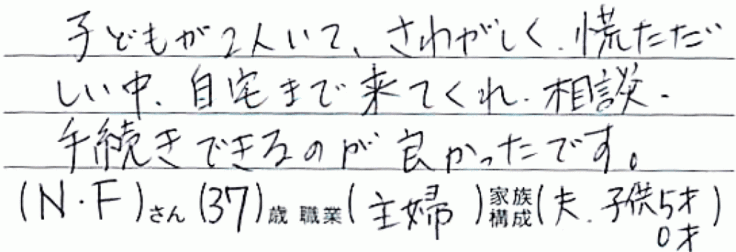 子どもが2人いて、さわがしく、慌ただ
しい中、自宅まで来てくれ、相談・
手続きできるのが良かったです。
(N・F)さん(37)歳 職業(主婦)家族構成(夫、子供5才
0才)